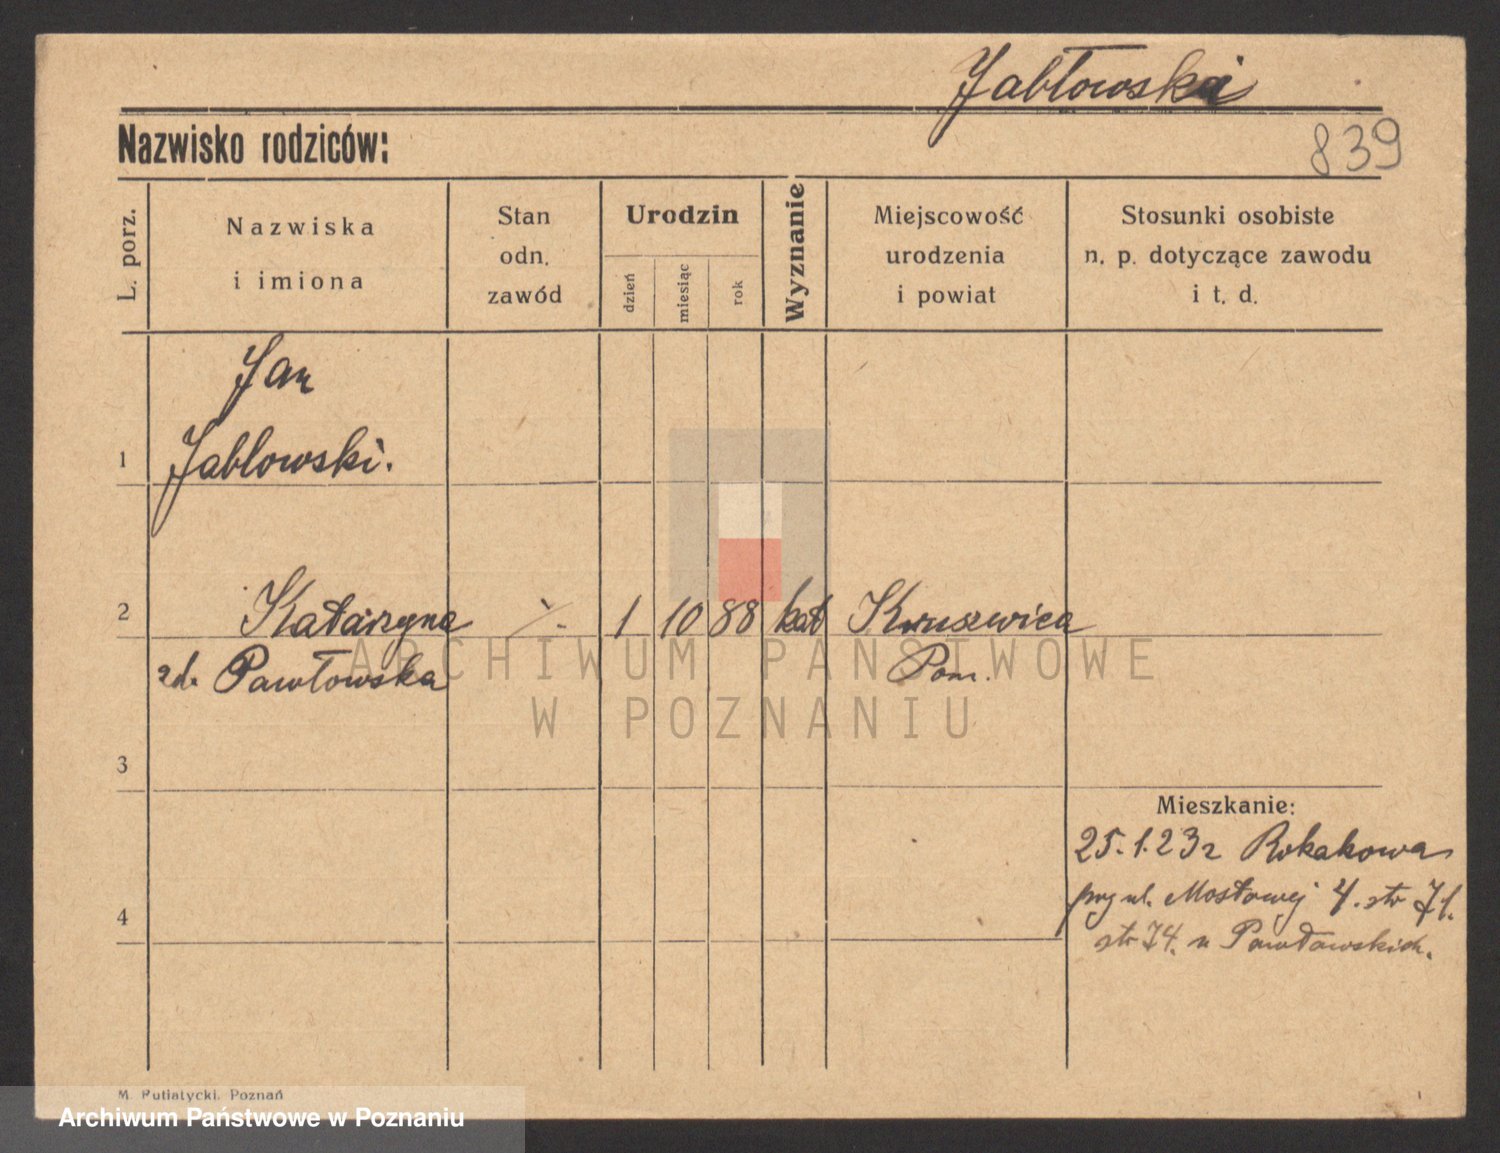 Jabłowski
Nazwisko rodziców:
839
L. porz.
Nazwiska
i imiona
Stan
odn.
zawód
Urodzin
dzień
miesiąc
rok
Wyznanie
Miejscowość
urodzenia
i powiat
Stosunki osobiste
n. p. dotyczące zawodu
i t. d.
Jan
1 Jablowski.
2 Katarzyna ·/. 1 10 88 kat Kruszwica
zd. Pawłowska Pom.
ARCHIWUM PAŃSTWOWE
W POZNANIU
3
Mieszkanie:
25.1.23r
ul. Mostowej 4. str 71.
4
str 74. u Pawłowskich.
M. Putiatycki, Poznań
Archiwum Państwowe w Poznaniu